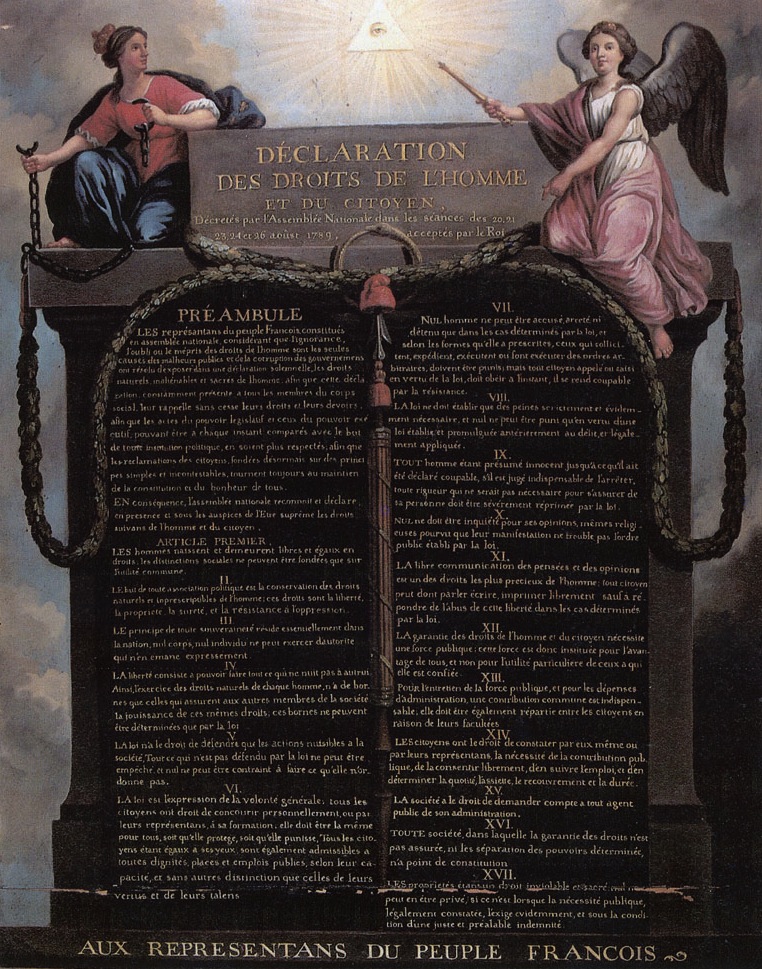 DÉCLARATION
DES DROITS DE L'HOMME
ET DU CITOYEN,
Décretés par l'Assemblée Nationale dans les séances des 20, 21
23, 24 et 26 aoûst 1789, acceptés par le Roi
PRÉAMBULE
LES représantans du peuple François, constitués
en assemblée nationale, considérant que l'ignorance,
l'oubli ou le mépris des droits de l'homme sont les seules
causes des malheurs publics et de la corruption des gouvernemens
ont résolu d'exposer dans une déclaration solemnelle, les droits
naturels, inaliénables et sacrés de l'homme; afin que cette décla
ration, constamment présente a tous les membres du corps
social, leur rappelle sans cesse leurs droits et leurs devoirs,
afin que les actes du pouvoir législatif et ceux du pouvoir exé
cutif, pouvant être a chaque instant comparés avec le but
de toute institution politique, en soient plus respectés; afin que
les reclamations des citoyens, fondées désormais sur des princi
pes simples et incontestables, tournent toujours au maintien
de la constitution et du bonheur de tous.
EN conséquence, l'assemblée nationale reconnoit et déclare,
en presence et sous les auspices de l'Etre suprême les droits
suivans de l'homme et du citoyen.
ARTICLE PREMIER,
LES hommes naissent et demeurent libres et égaux en
droits; les distinctions sociales ne peuvent être fondées que sur
l'utilité commune.
II.
LE but de toute association politique est la conservation des droits
naturels et inprescriptibles de l'homme; ces droits sont la liberté,
la propriété, la sureté, et la résistance à l'oppression.
III.
LE principe de toute souveraineté réside essentiellement dans
la nation, nul corps, nul individu ne peut exercer d'autorité
qui n'en émane expressement.
IV.
LA liberté consiste a pouvoir faire tout ce qui ne nuit pas à autrui
Ainsi, l'exercice des droits naturels de chaque homme, n'a de bor-
nes que celles qui assurent aux autres membres de la société
la jouissance de ces mêmes droits; ces bornes ne peuvent
être déterminées que par la loi
V.
LA loi n'a le droit de défendre que les actions nuisibles à la
société, Tout ce qui n'est pas défendu par la loi ne peut être
empêché, et nul ne peut être contraint à faire ce qu'elle n'or-
donne pas.
VI.
LA loi est l'expression de la volonté générale; tous les
citoyens ont droit de concourir personnellement, ou par
leurs représentans, à sa formation; elle doit être la même
pour tous, soit qu'elle protege, soit qu'elle punisse, Tous les cito-
yens étant égaux à ses yeux, sont également admissibles a
toutes dignités, places et emplois publics, selon leur ca-
pacité, et sans autres distinction que celles de leurs
vertus et de leurs talens
VII.
NUL homme ne peut être accusé, arreté ni
détenu que dans les cas déterminés par la loi, et
selon les formes qu'elle a prescrites, ceux qui sollici-
tent, expédient, exécutent ou font exécuter des ordres ar-
bitraires, doivent être punis; mais tout citoyen appelé ou saisi
en vertu de la loi, doit obéir a l'instant, il se rend coupable
par la résistance.
VIII.
LA loi ne doit établir que des peines strictement et évidem-
ment nécessaire, et nul ne peut être puni qu'en vertu d'une
loi établie, et promulguée antérieurement au délit, et légale-
ment appliquée.
IX.
TOUT homme étant présumé innocent jusqu'à ce qu'il ait
été déclaré coupable, s'il est jugé indispensable de l'arrêter,
toute rigueur qui ne serait pas nécessaire pour s'assurer de
sa personne doit être sévèrement réprimée par la loi.
X.
NUL ne doit être inquiété pour ses opinions, mêmes religi-
euses pourvu que leur manifestation ne trouble pas l'ordre
public établi par la loi.
XI.
LA libre communication des pensées et des opinions
est un des droits les plus precieux de l'homme; tout citoyen
peut dont parler écrire, imprimer librement sauf à ré-
pondre de l'abus de cette liberté dans les cas déterminés
par la loi.
XII.
LA garantie des droits de l'homme et du citoyen nécessite
une force publique; cette force est donc instituée pour l'avan-
tage de tous, et non pour l'utilité particuliere de ceux a qui
elle est confiée.
XIII.
POUR l'entretien de la force publique, et pour les dépenses
d'administration, une contribution commune est indispen-
sable; elle doit être également répartie entre les citoyens en
raison de leurs facultées
XIV.
LES citoyens ont le droit de constater par eux même ou
par leurs représentans, la nécessité de la contribution pub-
lique, de la consentir librement, d'en suivre l'emploi, et d'en
déterminer la quotité, l'assiette, le recouvrement et la durée.
XV.
LA société a le droit de demander compte a tout agent
public de son administration.
XVI.
TOUTE société, dans laquelle la garantie des droits n'est
pas assurée, ni les séparation des pouvoirs déterminée,
n'a point de constitution
XVII.
LES propriétés étant un droit inviolable et sacré, nul ne
peut en être privé, si ce n'est lorsque la nécessité publique,
légalement constatée, l'exige evidemment, et sous la condi-
tion d'une juste et préalable indemnité.
AUX REPRESENTANS DU PEUPLE FRANCOIS